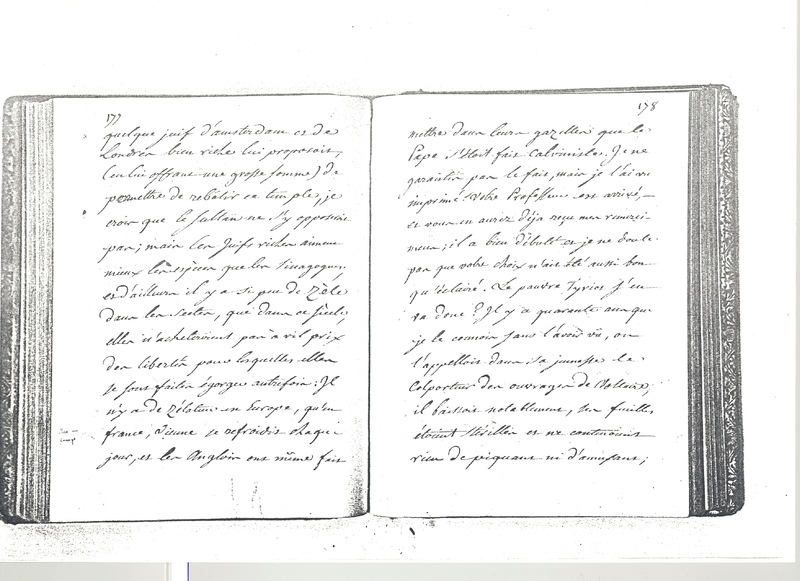 177
quelque juif d'amsterdam et de
Londres bien riche lui proposoit,
(en lui offrant une grosse somme) de
permettre de rebatir ce temple, je
crois que le Sultan ne s'y opposeroit
pas; mais les Juifs riches aiment
mieux les espèces que les Sinagogues,
et d'ailleurs il y a si peu de Zèle
dans les sectes, que dans ce siècle,
elles n'acheteroient pas à vil prix
des libertés pour lesquelles elles
se sont faites égorger autrefois: Il
n'y a de Zélateurs en Europe, qu'en
france, Vienne se refroidit chaque
jour, et les Anglois ont même fait
178
mettre dans leurs gazettes que le
Pape s'étoit fait Calviniste. Je ne
garantis pas le fait, mais je l'ai vu
imprimé. Votre Professeur est arrivé,
et vous en aurez déja reçu mes remerci-
mens; il a bien débuté et je ne doute
pas que votre choix n'ait été aussi bon
qu'éclairé. Le pauvre Tyriot s'en
va donc? Il y a quarante ans que
je le connois sans l'avoir vû, on
l'appelloit dans sa jeunesse le
Colporteur des ouvrages de Voltaire,
il baissoit notablement, ses feuilles
étoient stériles et ne contenoient
rien de piquant ni d'amusant;